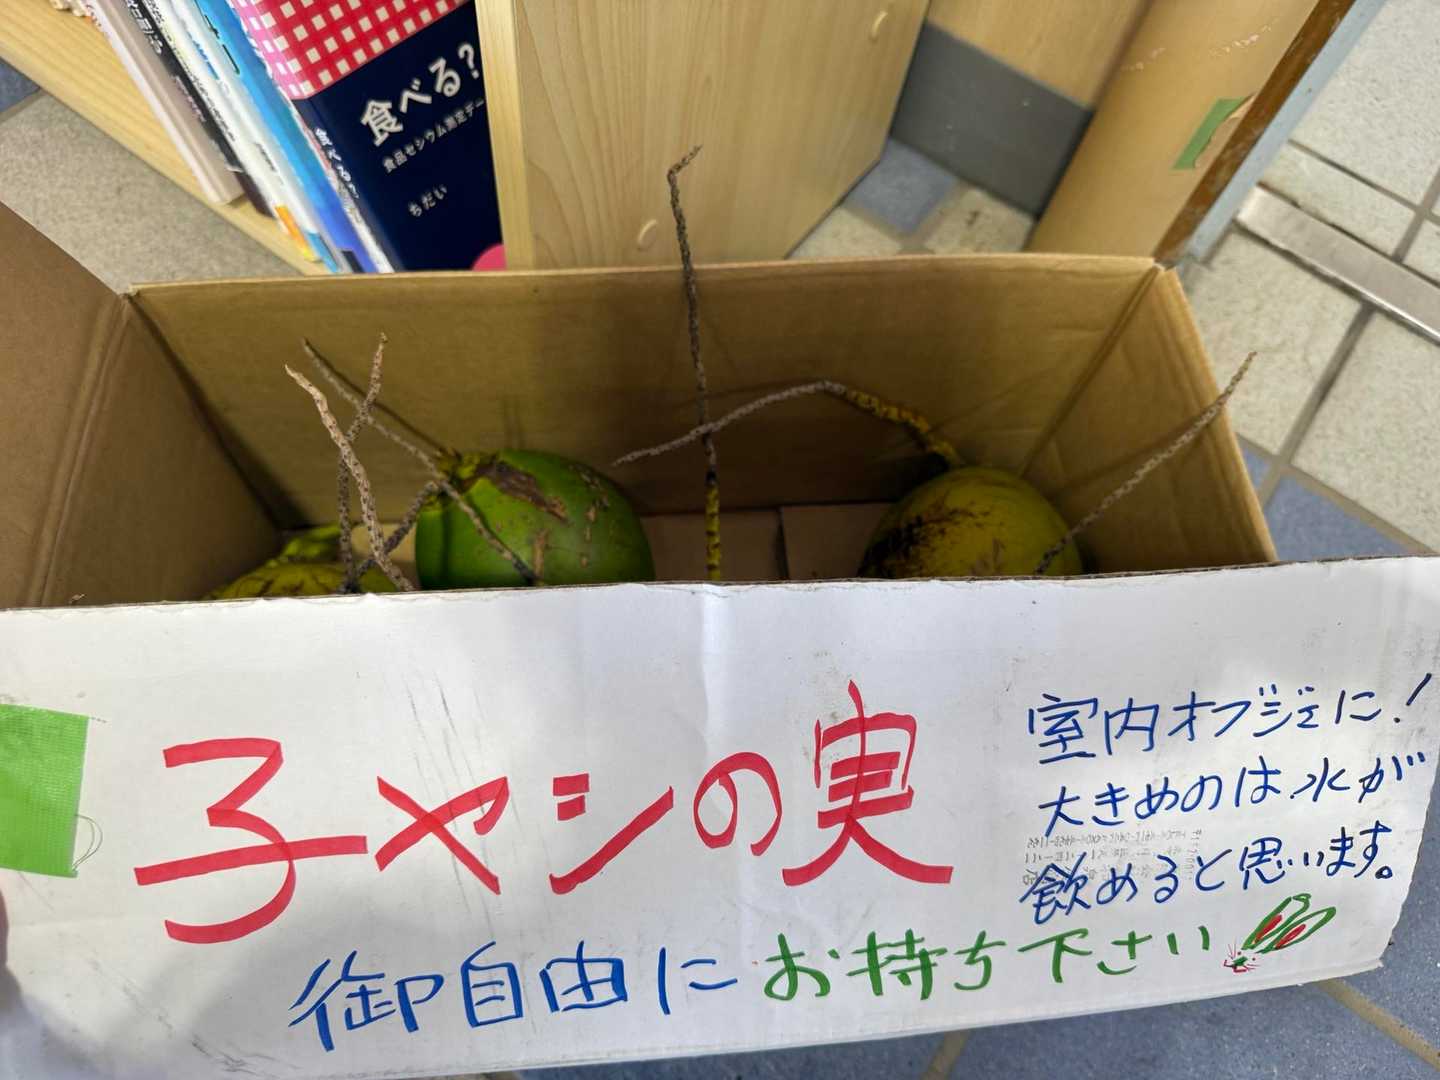 食べる?
食品セシウム測定デー
ちだい
子ヤシの実
室内オブジェに!
大きめのは水が
飲めると思います。
御自由にお持ち下さい